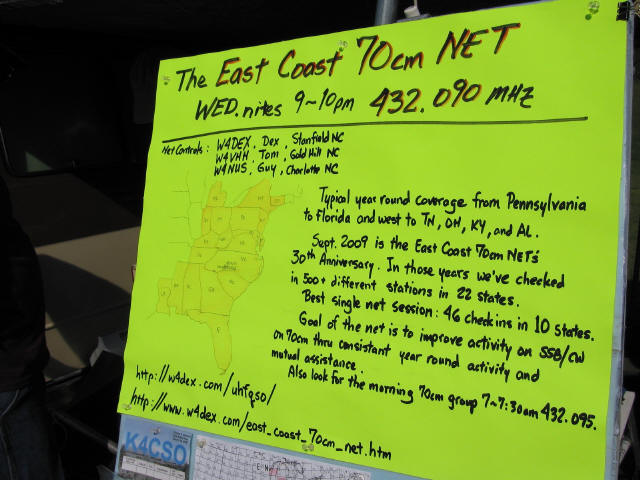 The East Coast 70cm NET
WED. nites 9~10pm 432.090 MHZ
Net Controls: W4DEX, Dex, Stanfield NC
W4VHH, Tom, Gold Hill NC
W4NUS, Guy, Charlotte NC
Typical year round coverage from Pennsylvania
to Florida and west to TN, OH, KY, and AL.
Sept. 2009 is the East Coast 70cm NET's
30th Anniversary. In those years we've checked
in 500+ different stations in 22 states.
Best single net session: 46 checkins in 10 states.
Goal of the net is to improve activity on SSB/CW
on 70cm thru consistant year round activity and
mutual assistance.
Also look for the morning 70cm group 7~7:30am 432.095.
http://w4dex.com/uhfqso/
http://www.w4dex.com/east_coast_70cm_net.htm
K4CSO